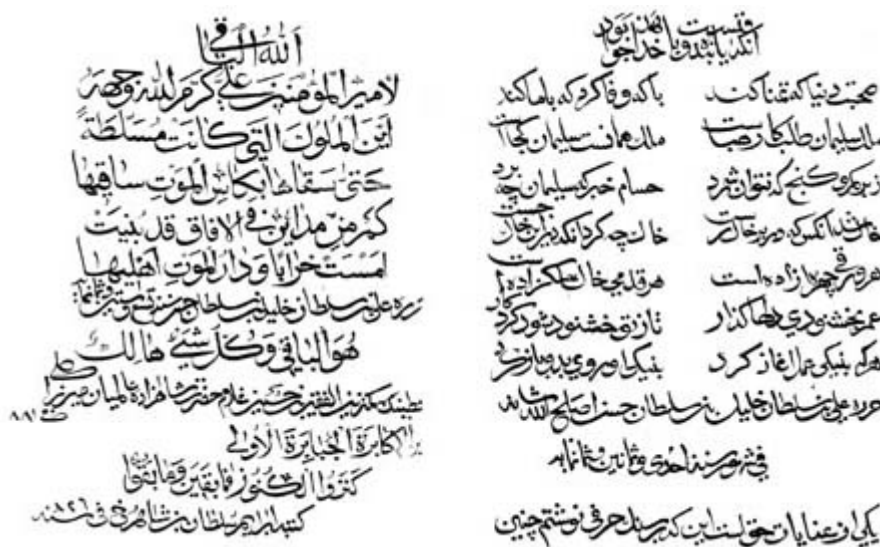 صحبت دنیا که تمنا کند با که وفا کرد که با ما کند
ملک سلیمان ملک همانست سلیمان کجاست
گنج که نتوان شمرد سلیمان چه برد
خاک شد آنکس که درین خاک خاک چه کرد آنکه درین خاک
هر ورقی چهره آزاده است هر قدمی خاک ملکزاده است
عمر بخشنودی دلها گذار تا ز تو خشنود شود کردگار
هر که بنیکی عمل آغاز کرد نیکی او روی بدو باز کرد
حرره علی بن سلطان خلیل بن سلطان حسن اصلح الله شانه
فی شهور سنة احدی و ثمانین و ثمانمایه
یکی از عنایات حق است این که بر سنگ حرفی نوشتم چنین
الله الباقی
لامیر المؤمنین علی کرم الله وجهه
این الملوک التی کانت مسلطة
حتی سقاها بکاس الموت ساقیها
کم من مداین فی الافاق قد بنیت
امست خرابا و دار الموت اهلیها
حرره علی بن سلطان خلیل بن سلطان حسن سنه
هو الباقی و کل شیء هالک
الفقیر حسین غلام حضرت شاهزاده عالمیان میرزا علی ٨٨١
الاکاسرة الجبابرة الاولی
کنزوا الکنوز فما بقین و ما بقوا
کتبه ابراهیم سلطان بن شاهرخ فی سنه ٨٢٦